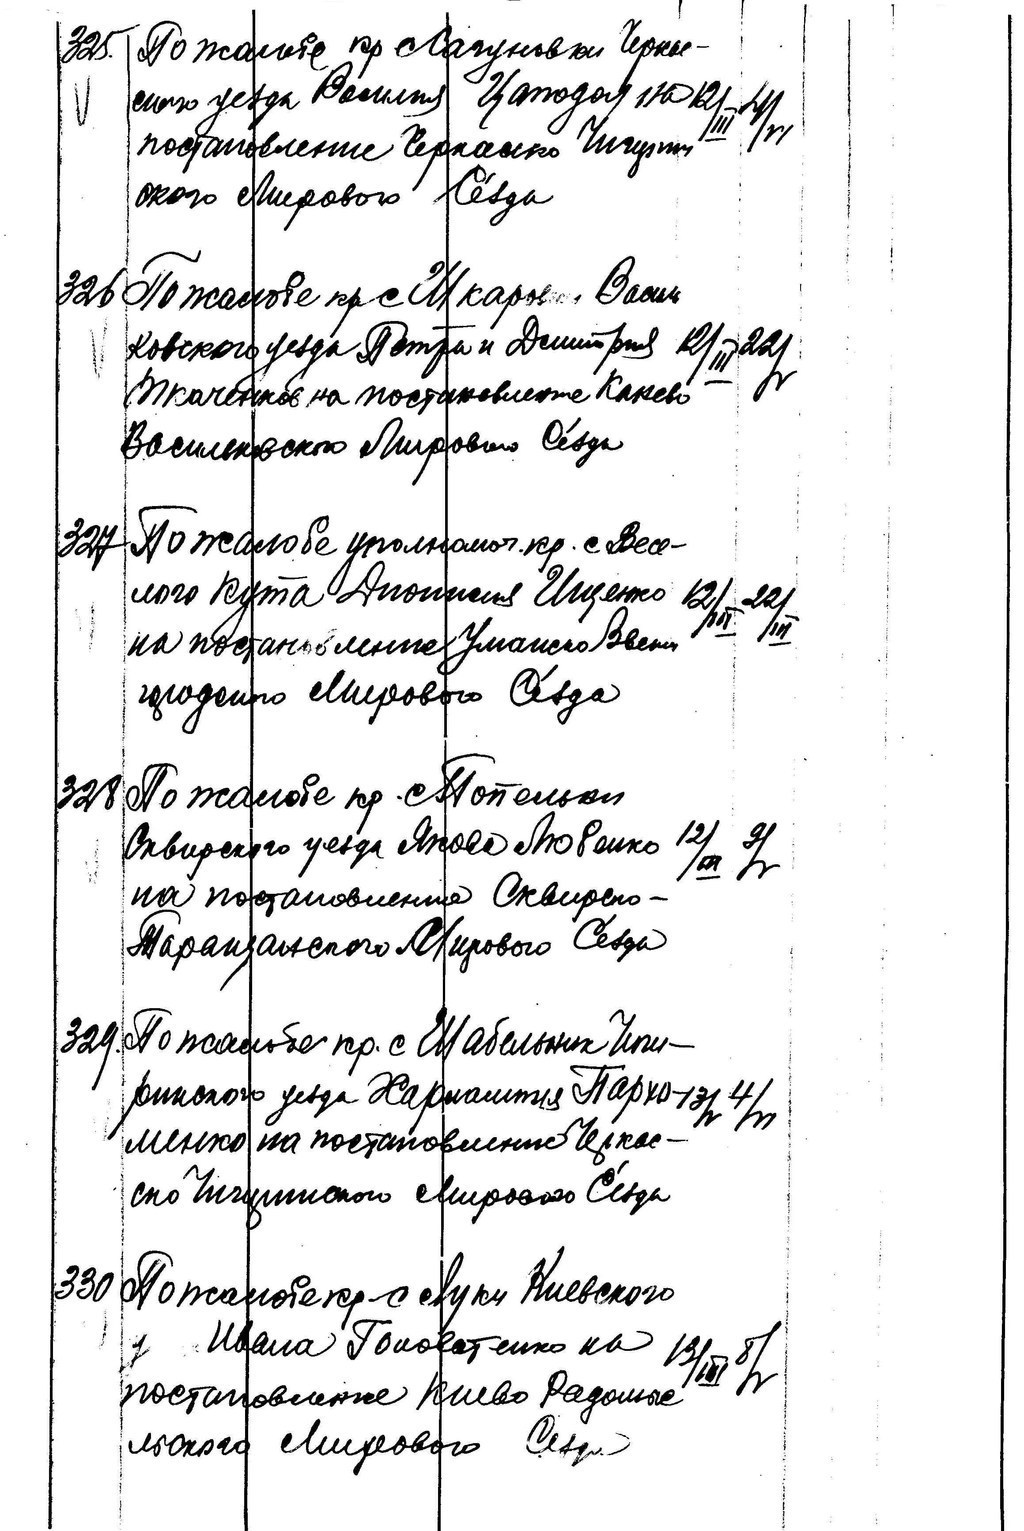 325. По жалобе кр с Лагуновки Черкас-
ского уезда Василия на 12/III 4/VI
постановление Черкасско Чигирин
ского Мирового Сезда
326 По жалобе кр с Шкаровки Василь
ковского уезда Петра и Димитрия 12/III 22/V
Ткаченков на постановление Канево
Васильковского Мирового Сезда
327 По жалобе уполномоч. кр. с Весе-
лого Кута Дионисия Ищенко 12/III 22/III
на постановление Уманско Звени
городского Мирового Сезда
328 По жалобе кр. с Топельки
Сквирского уезда Якова 12/III 9/V
на постановление Сквирско-
Таращанского Мирового Сезда
329. По жалобе кр. с Шабельник Чиги-
ринского уезда Харлампия Пархо- 13/V 4/VI
менко на постановление Черкас-
ско Чигиринского Мирового Сезда
330 По жалобе кр с Луки Киевского
у Ивана на 13/III 8/V
постановление Киево Радомыс
льского Мирового Сезда